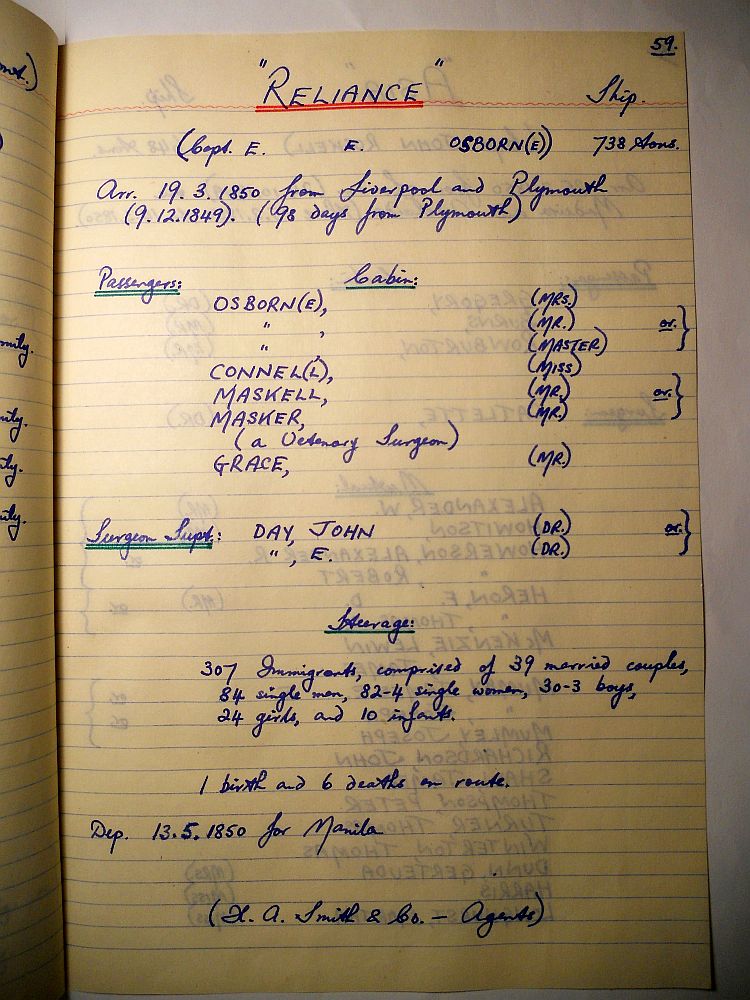 59.
"RELIANCE" Ship.
(Capt. E. E. OSBORN(E)) 738 tons.
Arr. 19.3.1850 from Liverpool and Plymouth
(9.12.1849). (98 days from Plymouth)
Passengers: Cabin:
OSBORN(E), (MRS.)
" , (MR.) or.}
" , (MASTER)
CONNEL(L), (MISS)
MASKELL, (MR.) or.}
MASKER, (MR.)
(a Vetenary Surgeon)
GRACE, (MR.)
Surgeon Supt.: DAY, JOHN (DR.) or.}
" , E. (DR.)
Steerage:
307 Immigrants, comprised of 39 married couples,
84 single men, 82-4 single women, 30-3 boys,
24 girls, and 10 infants.
1 birth and 6 deaths en route.
Dep. 13.5.1850 for Manila
(H. A. Smith & Co. - Agents)
mily.
ly.
ly.
ily.